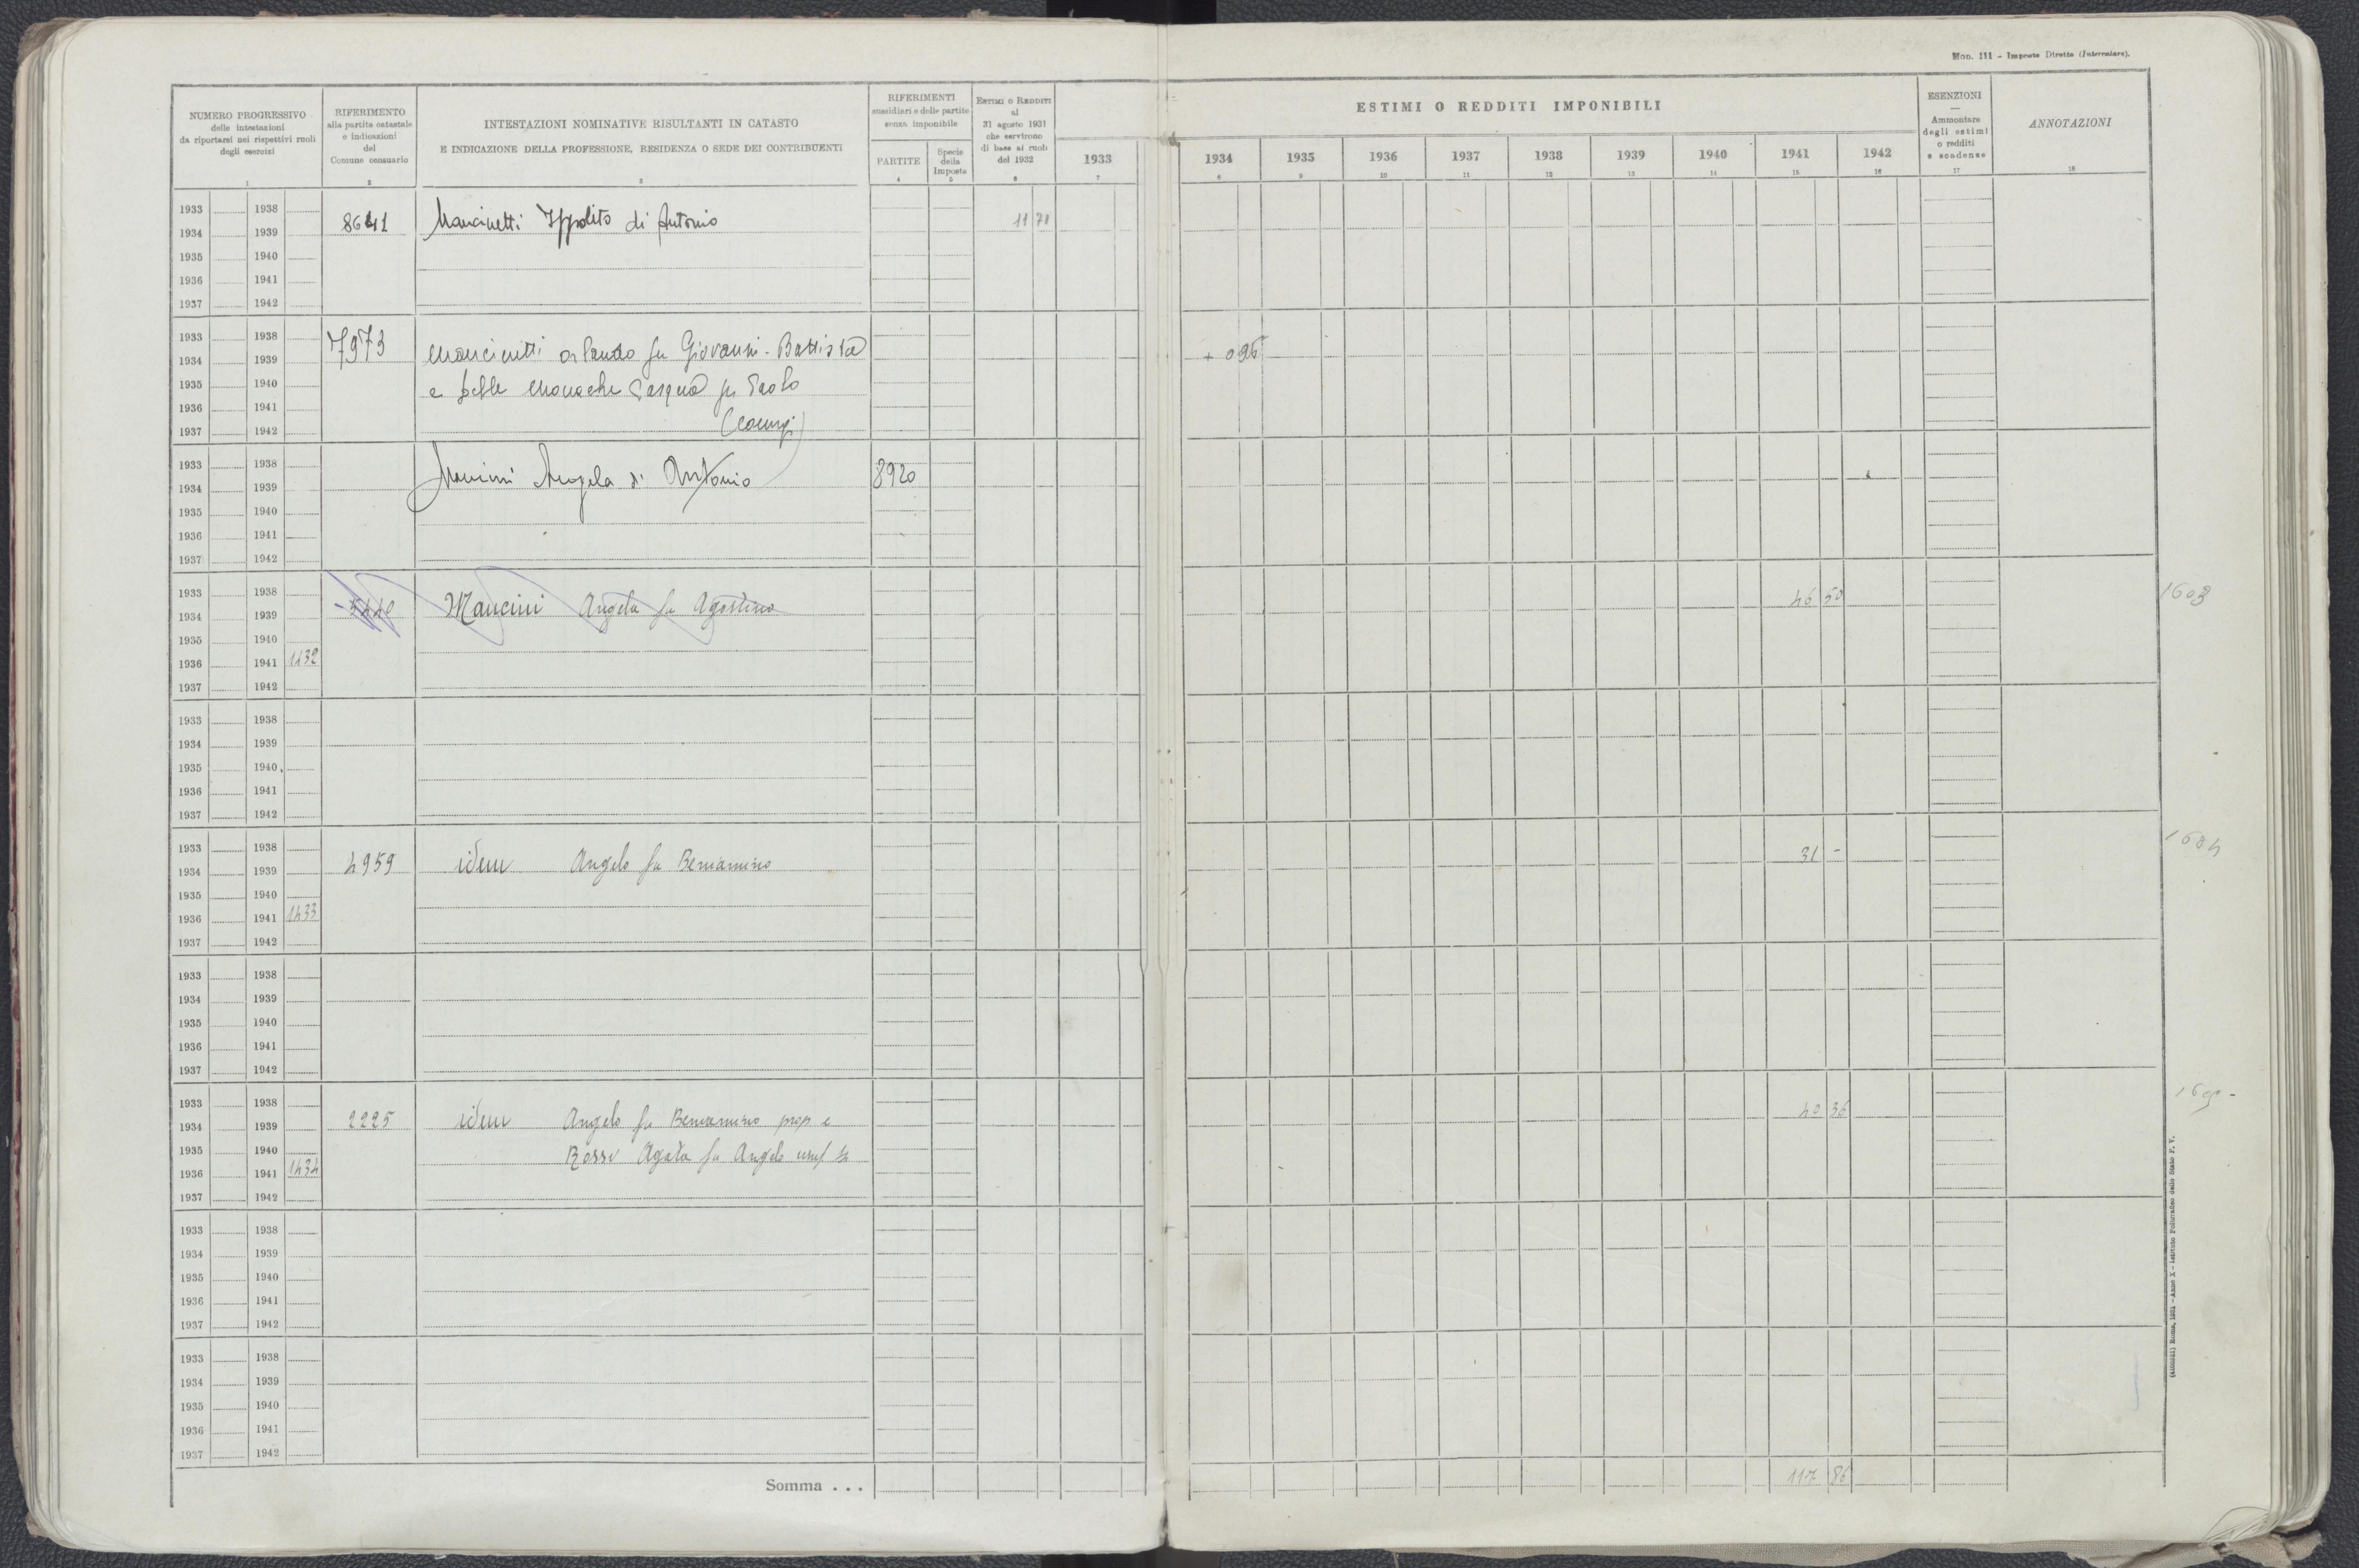 Mod. 111 - Imposte Dirette (Intercalare).
NUMERO PROGRESSIVO
delle intestazioni
da riportarsi nei rispettivi ruoli
degli esercizi
1
RIFERIMENTO
alla partita catastale
e indicazioni
del
Comune censuario
2
INTESTAZIONI NOMINATIVE RISULTANTI IN CATASTO
E INDICAZIONE DELLA PROFESSIONE, RESIDENZA O SEDE DEI CONTRIBUENTI
3
RIFERIMENTI
sussidiari e delle partite
senza imponibile
PARTITE
4
Specie
della
Imposta
5
ESTIMI O REDDITI
al
31 agosto 1931
che servirono
di base ai ruoli
del 1932
6
ESTIMI O REDDITI IMPONIBILI
1933 1934 1935 1936 1937 1938 1939 1940 1941 1942
7 8 9 10 11 12 13 14 15 16
ESENZIONI
—
Ammontare
degli estimi
o redditi
e scadenze
17
ANNOTAZIONI
18
1933 1938
8641 Mancinetti Ippolito di Antonio 11 71
1934 1939
1935 1940
1936 1941
1937 1942
1933 1938
7973 Mancinetti Orlando fu Giovanni-Battista + 0 96
1934 1939
e Delle Monache Pasqua fu Paolo
1935 1940
1936 1941
(Coniugi)
1937 1942
1933 1938
Mancini Angela di Antonio 8920
1934 1939
1935 1940
1936 1941
1937 1942
1933 1938
Mancini Angela fu Agostino 46 50 1603
1934 1939
1935 1940
1936 1941 1432
1937 1942
1933 1938
1934 1939
1935 1940
1936 1941
1937 1942
1933 1938
4959 idem Angelo fu Beniamino 31 - 1604
1934 1939
1935 1940
1936 1941 1433
1937 1942
1933 1938
1934 1939
1935 1940
1936 1941
1937 1942
1933 1938
2225 idem Angelo fu Beniamino prop e 40 36
1934 1939
1935 1940
Rossi Agata fu Angelo usuf
1936 1941 1434
1937 1942
1933 1938
1934 1939
1935 1940
1936 1941
1937 1942
1933 1938
1934 1939
1935 1940
1936 1941
1937 1942
Somma . . . 117 86
Roma, 1931 - Anno X - Istituto Poligrafico dello Stato P. V.